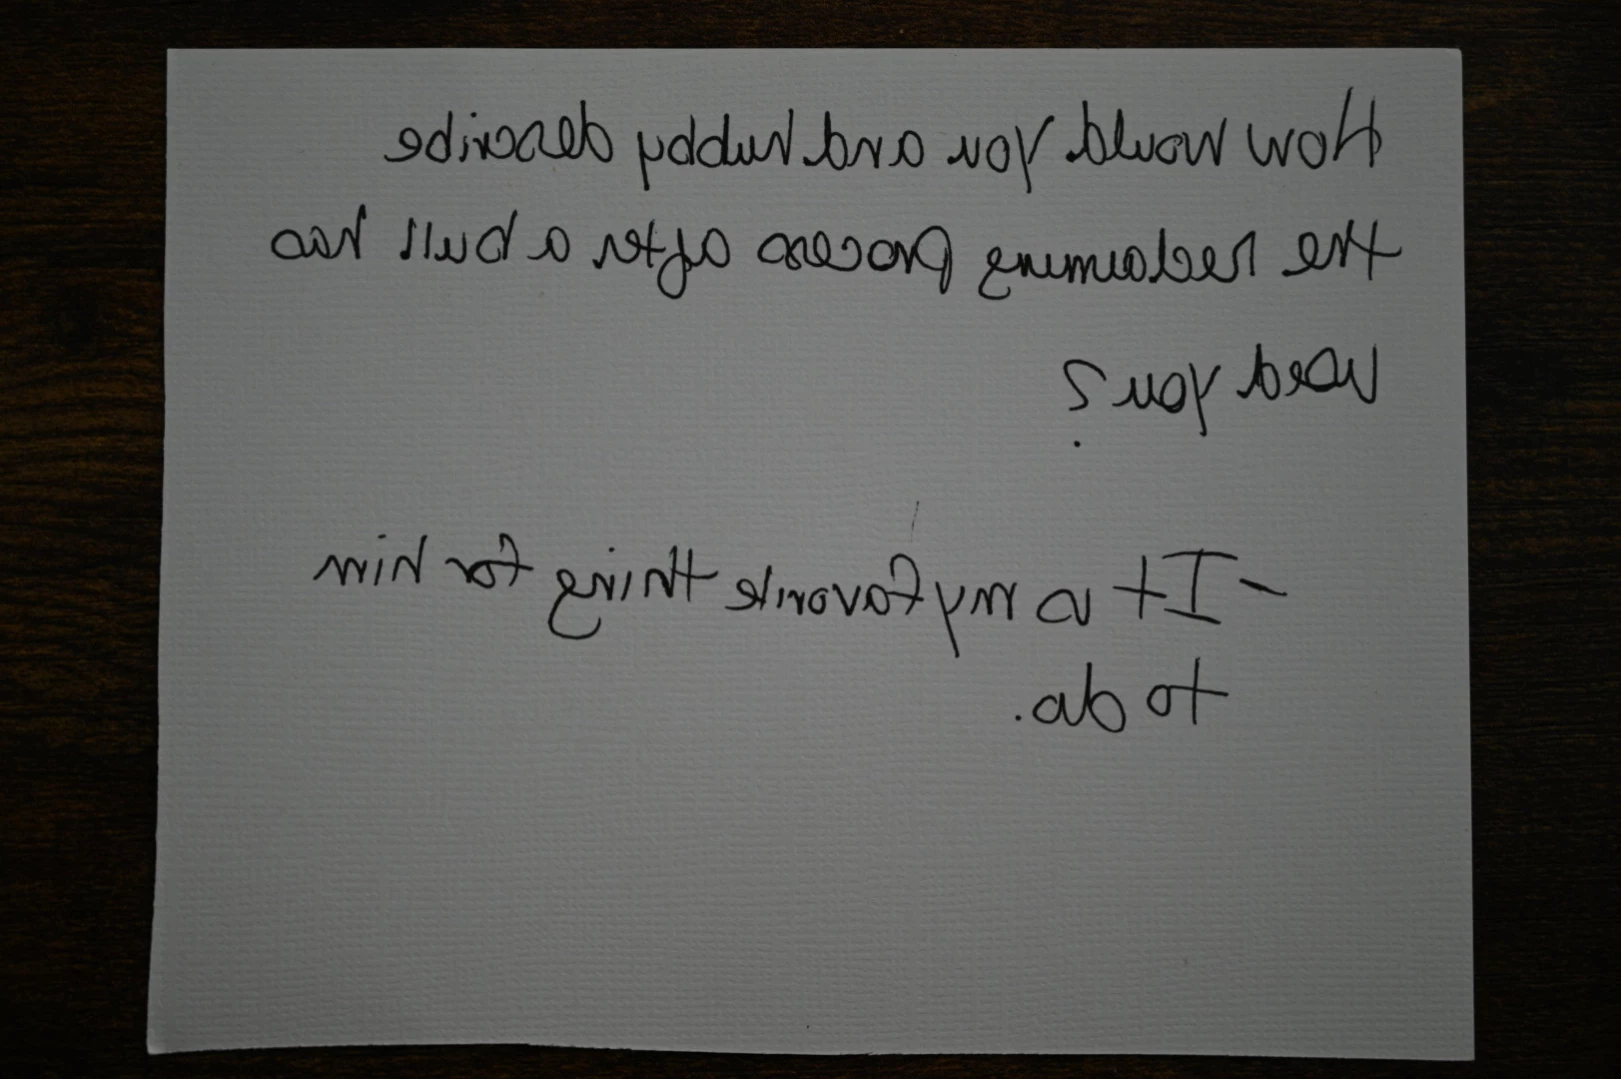 How would you and hubby describe
the reclaiming process after a bull has
used you?
- It is my favorite thing for him
to do.